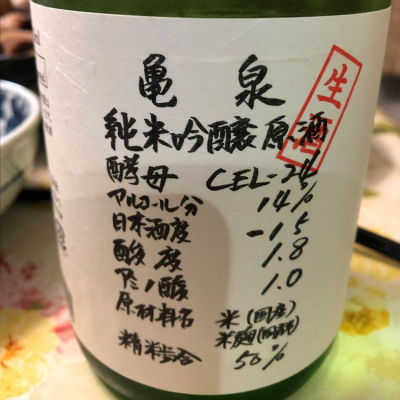 亀泉
生酒
純米吟醸原酒
酵母 CEL-24
アルコール分 14%
日本酒度 -15
酸度 1.8
アミノ酸 1.0
原材料名 米(国産)
米麹(国産米)
精米歩合 50%